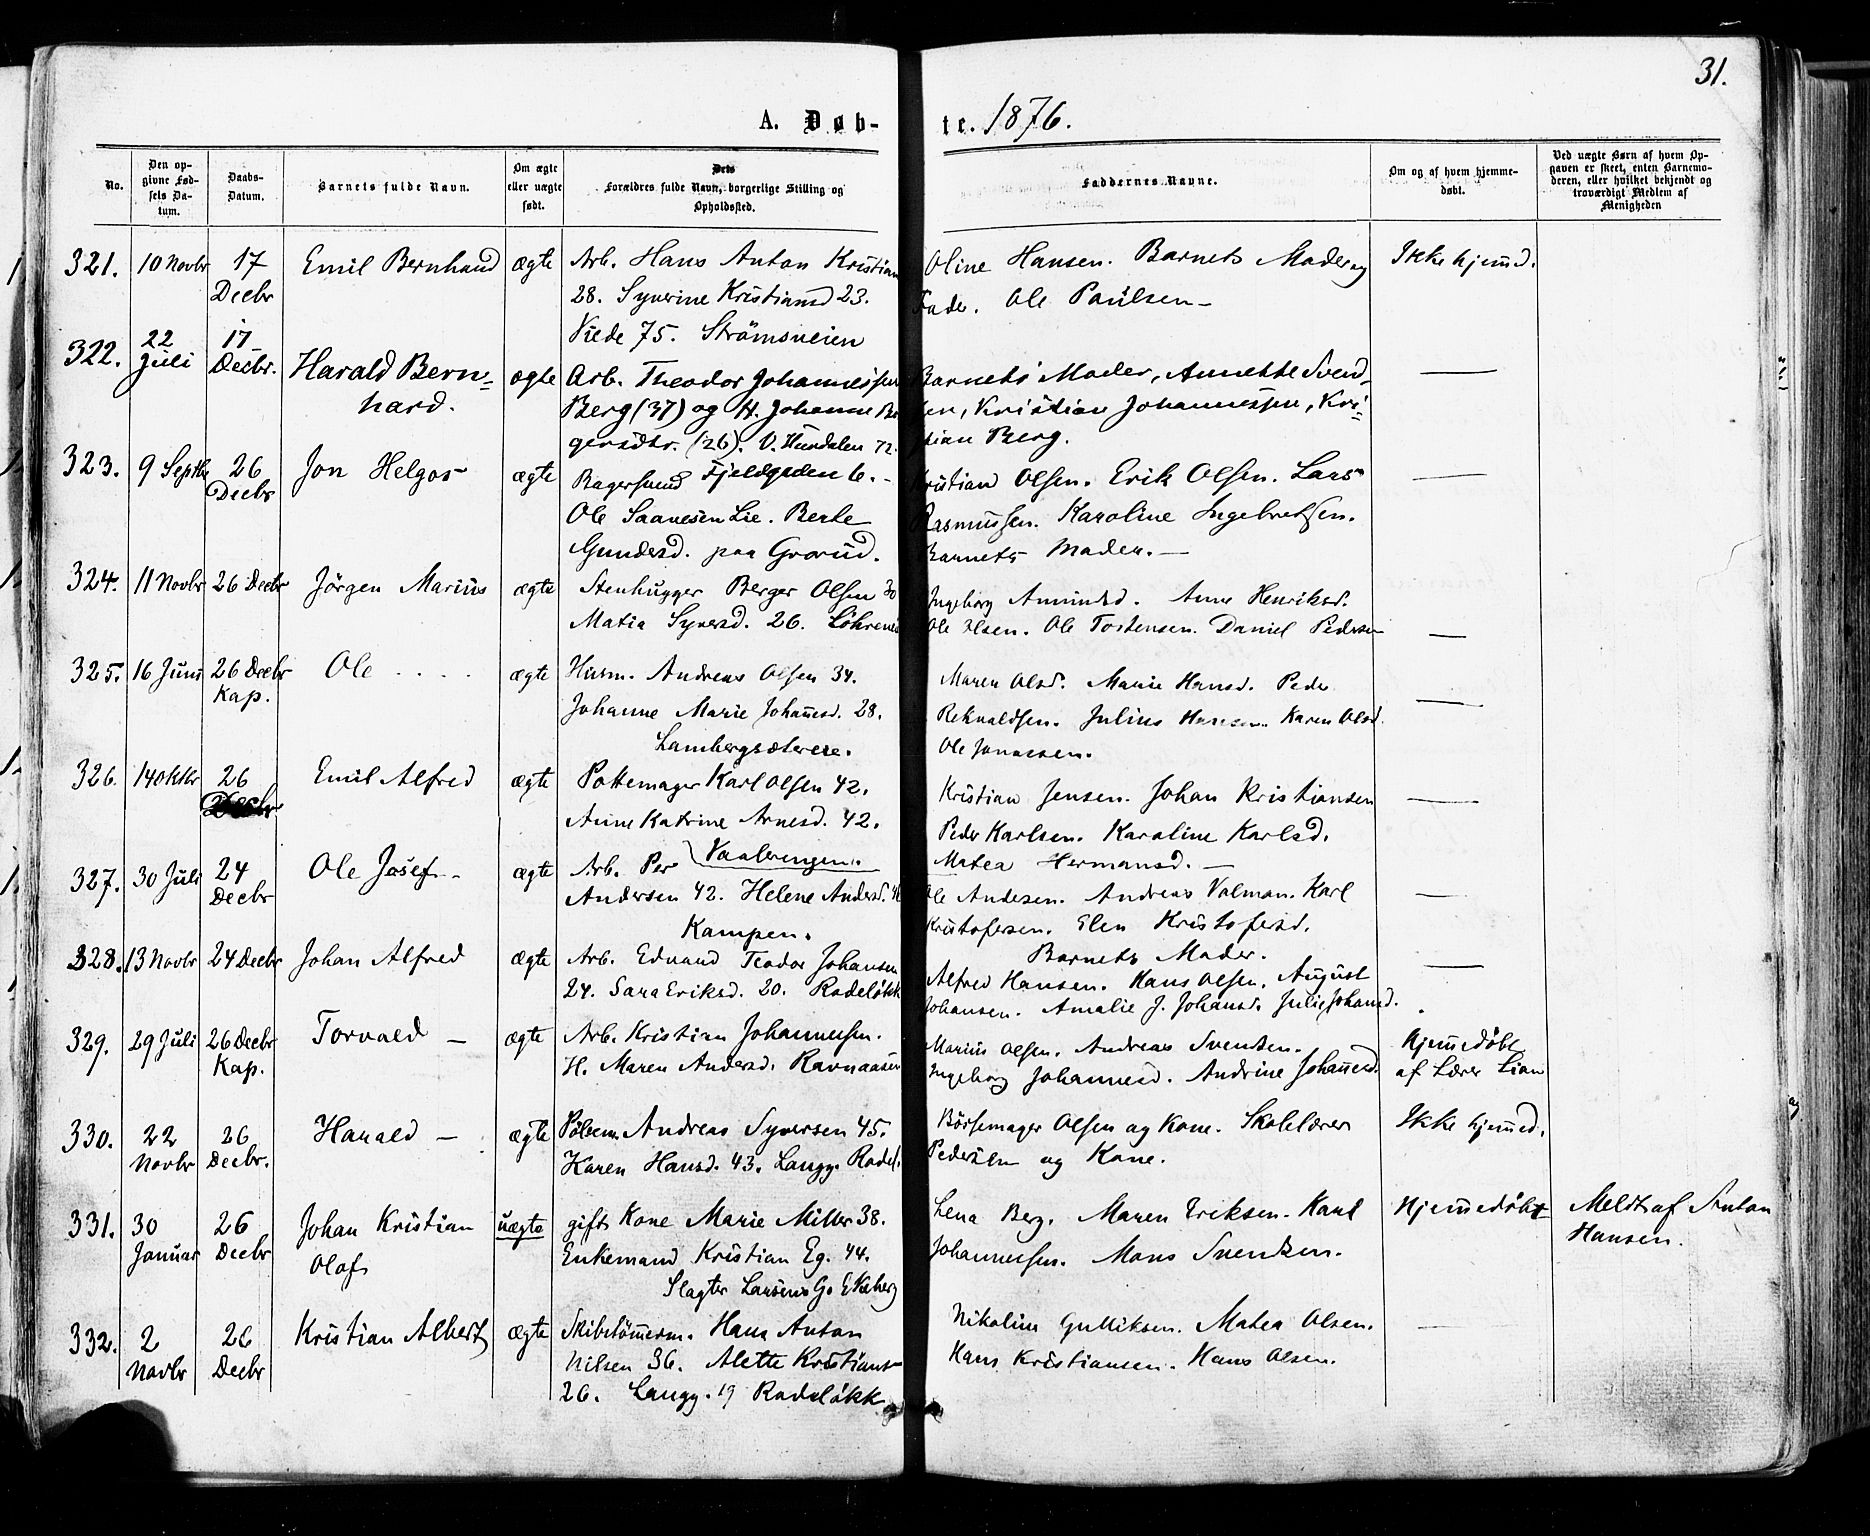 31.
A. Døb-
te. 1876.
No.
Den opgivne Fødsels Datum.
Daabs-Datum.
Barnets fulde Navn.
Om ægte eller uægte født.
Dets Forældres fulde Navn, borgerlige Stilling og Opholdssted.
Faddernes Navne.
Om og af hvem hjemmedøbt.
Ved uægte Børn af hvem Opgaven er skeet, enten Barnemoderen, eller hvilket bekjendt og troværdigt Medlem af Menigheden
321. 10 Novbr 17 Decbr Emil Bernhard ægte Arb. Hans Anton Kristian
28. Syverine Kristiansd 23.
75. Strömsveien
Oline Hansen. Barnets Moder og
Fader. Ole Paulsen
Ikke hjemd.
322. 22 Juli 17 Decbr. Harald Bern-
hard.
ægte Arb. Theodor Johannessen
Berg (37) og H. Johanne Bir
gersdtr. (26). V. Hurdalen 72.
Barnets Moder, Annette Svend-
sen, Kristian Johannessen, Kri-
stian Berg.
323. 9 Septbr 26 Decbr Jon Helgos ægte Bagersvend Fjeldgaden 6.
Ole Saavesen Lie. Berte
Gundersd. paa Grorud.
Kristian Olsen. Erik Olsen. Lars
Rasmussen. Karoline Ingebretsen.
Barnets Moder.
324. 11 Novbr 26 Decbr Jörgen Marius ægte Stenhugger Berger Olsen 30
Matia Syversd. 26.
Ingeborg Amundsd. Anne Henriksd.
Ole Olsen. Ole Tostensen. Daniel Pedersen
325. 16 Juni 26 Decbr Kap. Ole ægte Husm. Andreas Olsen 34.
Johanne Marie Johansd. 28.
Lambergsæterere.
Maren Olsd. Marie Hansd. Peder
Julius Hansen. Karen Olsd.
Ole Jonassen.
326. 14 Oktbr 26 Decbr Emil Alfred ægte Pottemager Karl Olsen 42.
Anne Katrine Arnesd. 42.
Vaalerengen.
Kristian Jensen. Johan Kristiansen
Peder Karlsen. Karoline Karlsd.
Matea Hermansd.
327. 30 Juli 24 Decbr Ole Josef ægte Arb. Per
Andersen 42. Helene Andersd.
Kampen.
Ole Andersen. Andreas Valman. Karl
Kristofersen. Elen Kristofersd.
Barnets Moder.
328. 13 Novbr 24 Decbr Johan Alfred ægte Arb. Edvard Teodor Johansen
24. Sara Eriksd. 20. Rodeløkk
Alfred Hansen. Hans Olsen. August
Johansen. Amalie J. Johansd. Julie Johansd.
329. 29 Juli 26 Decbr Kap. Torvald ægte Arb. Kristian Johannessen.
H. Maren Andersd. Ravnaasen
Marius Olsen. Andreas Svendsen.
Ingeborg Johannesd. Andrine Johannesd.
Hjemmedøbt
af Lærer Lian
330. 22 Novbr 26 Decbr. Harald ægte Pølsem. Andreas Syversen 45.
Karen Hansd. 43. Langg. Rodel.
Börsemager Olsen og Kone. Skolelærer
Pedersen og Kone.
Ikke hjemmed.
331. 30 Januar 26 Decbr Johan Kristian
Olaf
uægte gift Kone Marie Miller 38.
Enkemand Kristian Eg. 44.
Slagter Larsens G. Ekeberg
Lena Berg. Maren Eriksen. Karl
Johannessen. Mons Svendsen.
Hjemmedøbt
Meldt af Anton
Hansen.
332. 2 Novbr 26 Decbr Kristian Albert ægte Skibstömmerm. Hans Anton
Nilsen 36. Alette Kristians
26. Langg. 19 Rodeløkk
Nikoline Gulliksen. Matea Olsen.
Hans Kristiansen. Hans Olsen.